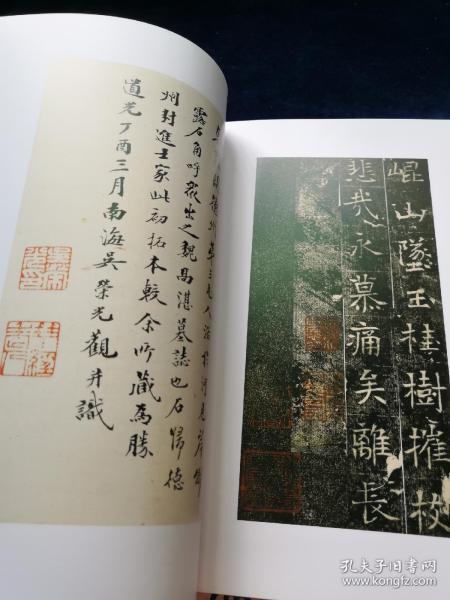 露石角呼衆出之魏高湛墓誌也石歸德
州封進士家此初拓本較余所藏爲勝
道光丁酉三月南海吳榮光觀并識
崐山墜玉桂樹摧枝
悲哉永慕痛矣離長
孔夫子旧书网
www.kongfz.com